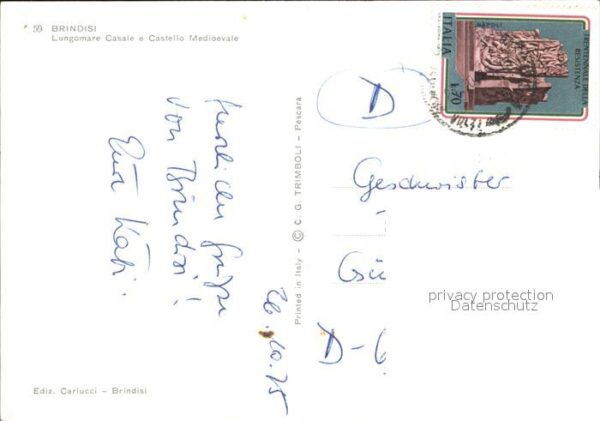 59 BRINDISI
Lungomare Casale e Castello Medioevale
Herzliche Grüße
von Brindisi!
Eure Käthi.
26.10.75
Ediz. Carlucci - Brindisi
Printed in Italy - © C. G. TRIMBOLI - Pescara
D
Geschwister
-
Gü
D-6
privacy protection
Datenschutz
ITALIA
TRENTENNALE DELLA
RESISTENZA
L.70